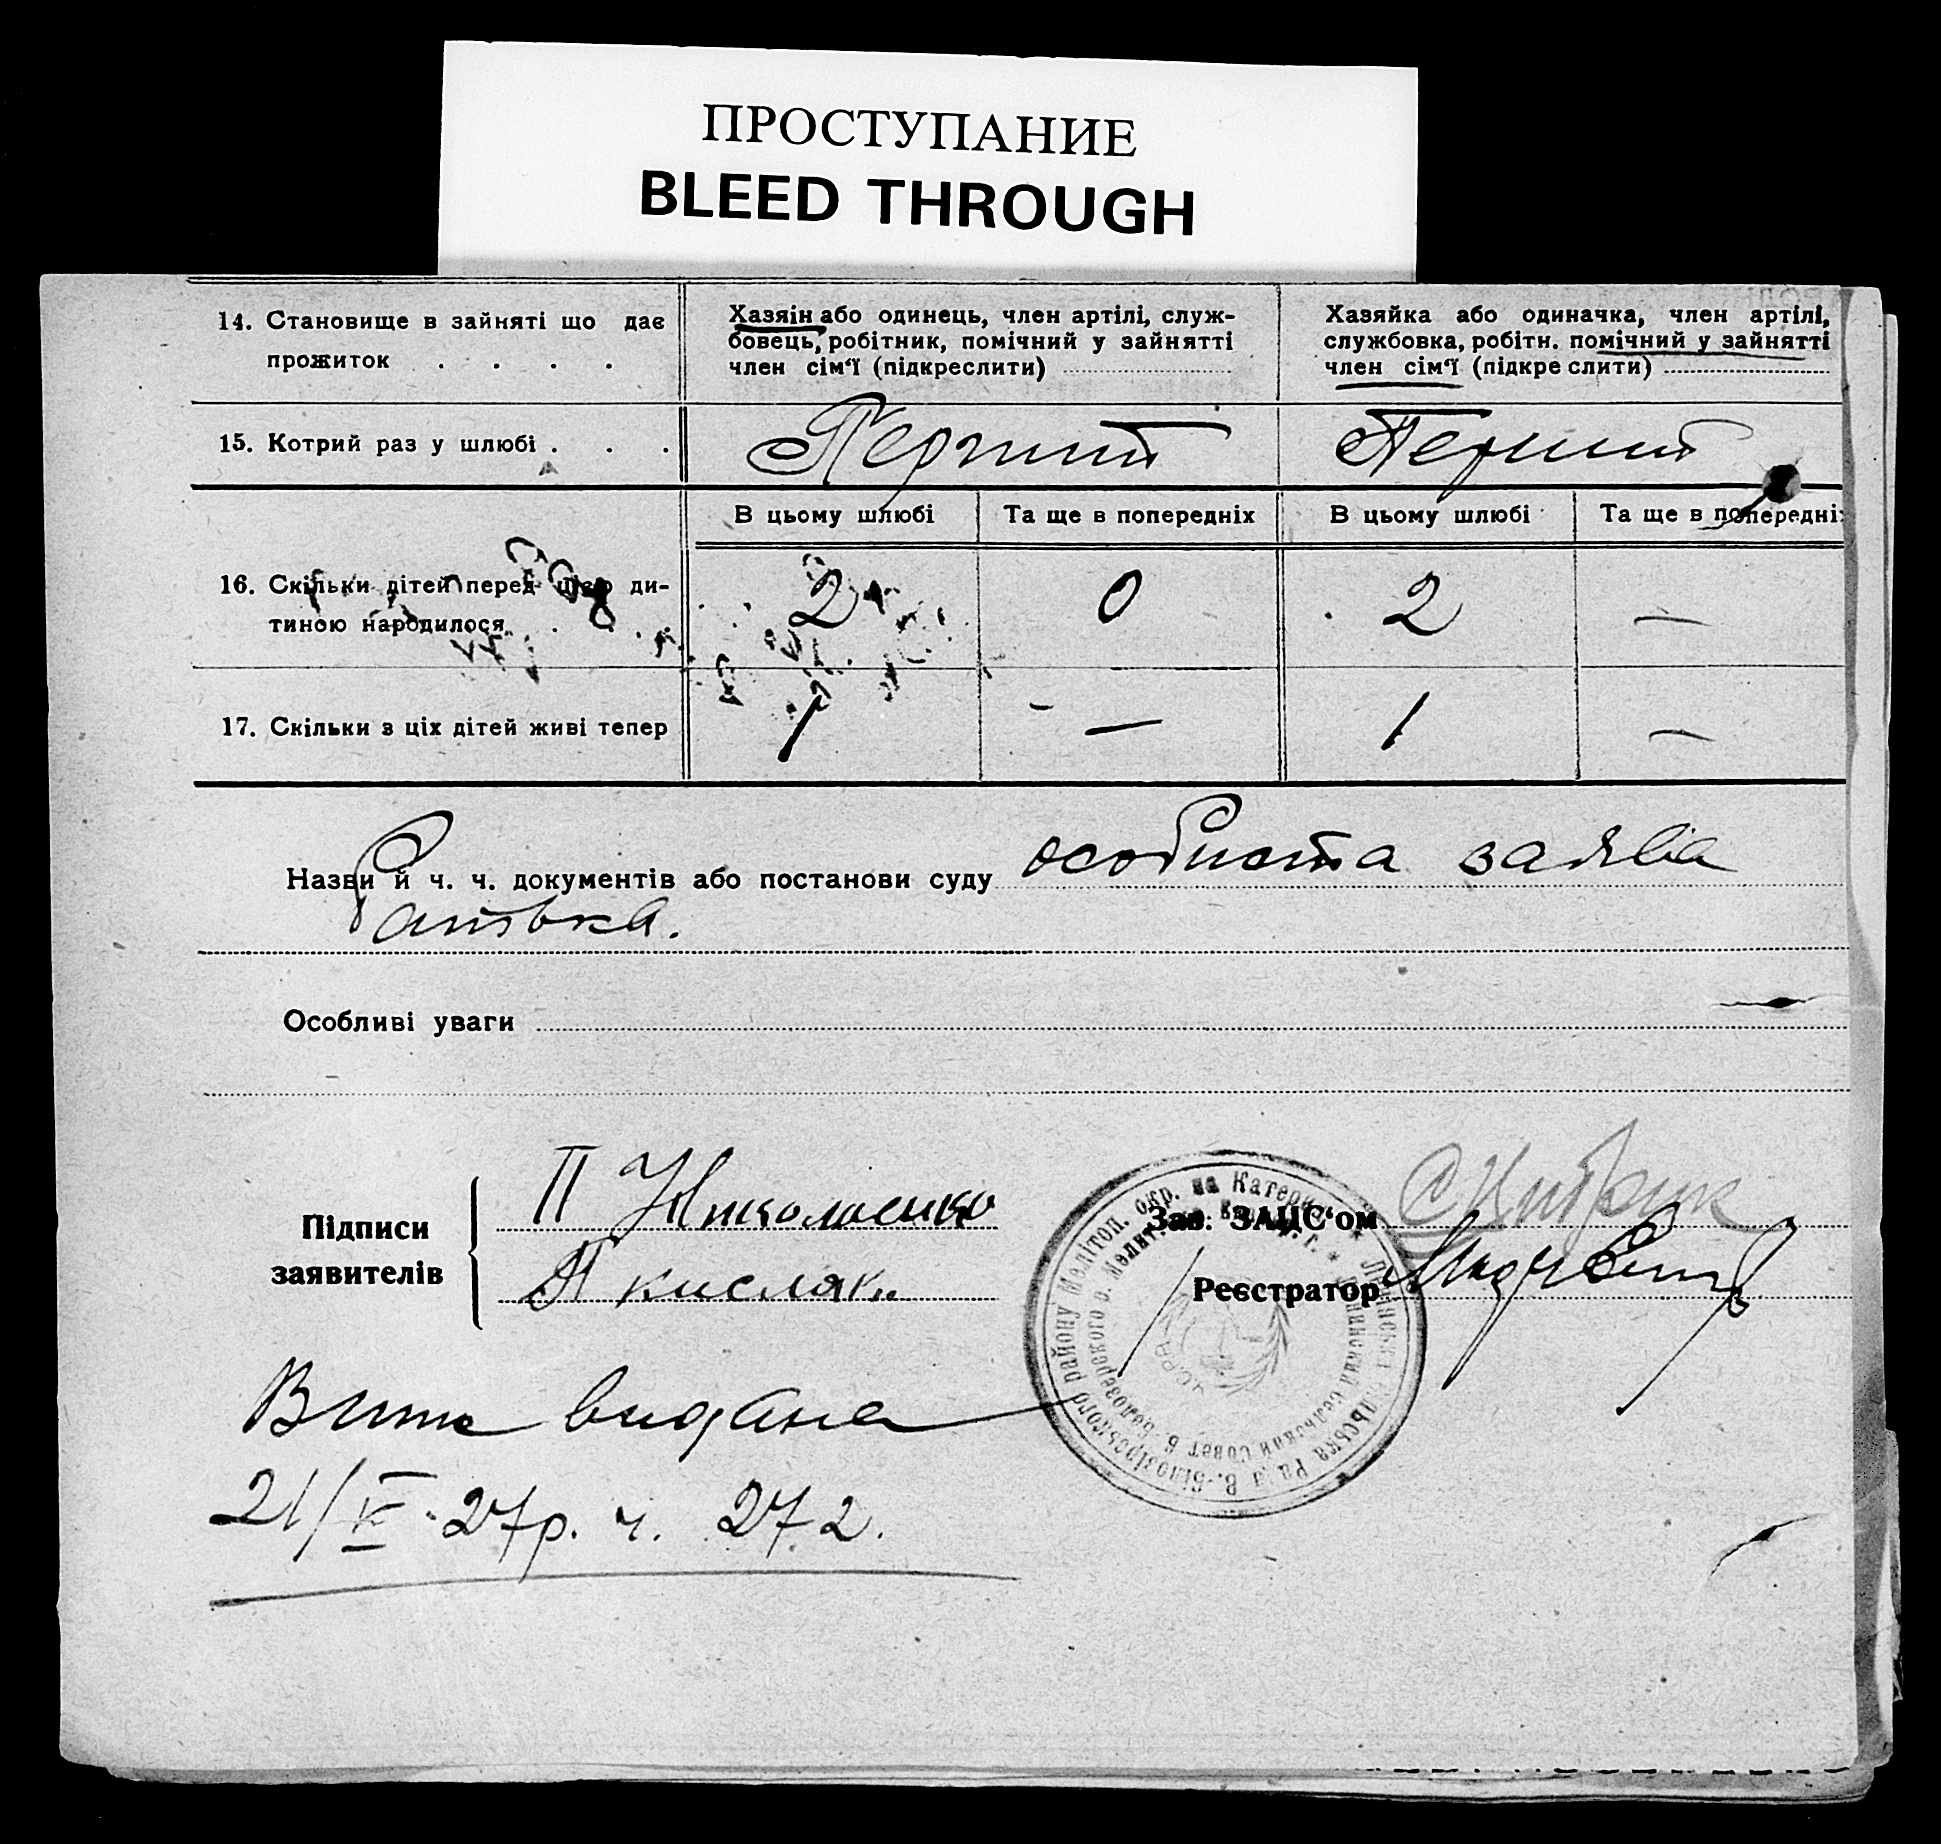 ПРОСТУПАНИЕ
BLEED THROUGH
14. Становище в зайняті що дає прожиток . . . .
Хазяін або одинець, член артілі, служ-
бовець, робітник, помічний у зайнятті
член сім'ї (підкреслити)
Хазяйка або одиначка, член артілі,
службовка, робітн. помічний у зайнятті
член сім'ї (підкреслити)
15. Котрий раз у шлюбі . . .
Перший
Перший
В цьому шлюбі
Та ще в попередніх
В цьому шлюбі
Та ще в попередніх
16. Скільки дітей перед цією ди-
тиною народилося
2
0
2
—
17. Скільки з ціх дітей живі тепер
1
—
1
—
Назви й ч. ч. документів або постанови суду особиста заява
батька.
Особливі уваги
Підписи
заявителів
П Николаенко
П кисляк
Зав. ЗАЦС'ом
Реєстратор
видана
21/V-27р. ч. 272.